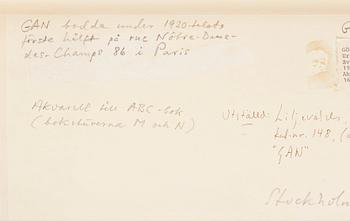 GAN bodde under 1920-talets
förste hälft på rue Nôtre-Dame-
des-Champs 86 i Paris
Akvarell till ABC-bok
(bokstäverna M och N)
Utställd: Liljevalchs,
kat.nr. 148,
"GAN"
Stockholm